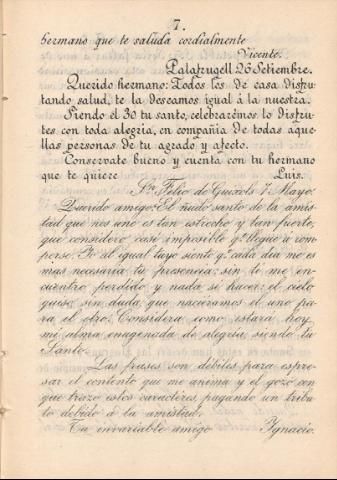 7.
hermano que te saluda cordialmente
Vicente.
Palafrugell 26 Setiembre.
Querido hermano: Todos los de casa disfru-
tando salud, te la deseamos igual á la nuestra.
Siendo el 30 tu santo, celebrarémos lo disfru-
tes con toda alegria, en compañia de todas aque-
llas personas de tu agrado y afecto.
Conservate bueno y cuenta con tu hermano
que te quiere Luis.
Sn. Felio de Guixols 7 Mayo.
Querido amigo: El ñudo santo de la amis-
tad que nos une es tan estrecho y tan fuerte,
que considero casi imposible q.e llegue á rom-
perse. Yo al igual tuyo siento q.e cada dia me es
mas necesaria tu presencia: sin ti me en-
cuentro perdido y nada sé hacer: el cielo
quiso, sin duda, que naciéramos el uno pa-
ra el otro. Considera como estará hoy
mi alma enagenada de alegria, siendo tu
Santo.
Las frases son debiles para espre-
sar el contento que me anima y el gozo con
que trazo estos caractéres pagando un tribu-
to debido á la amistad.
Tu invariable amigo Ygnacio.